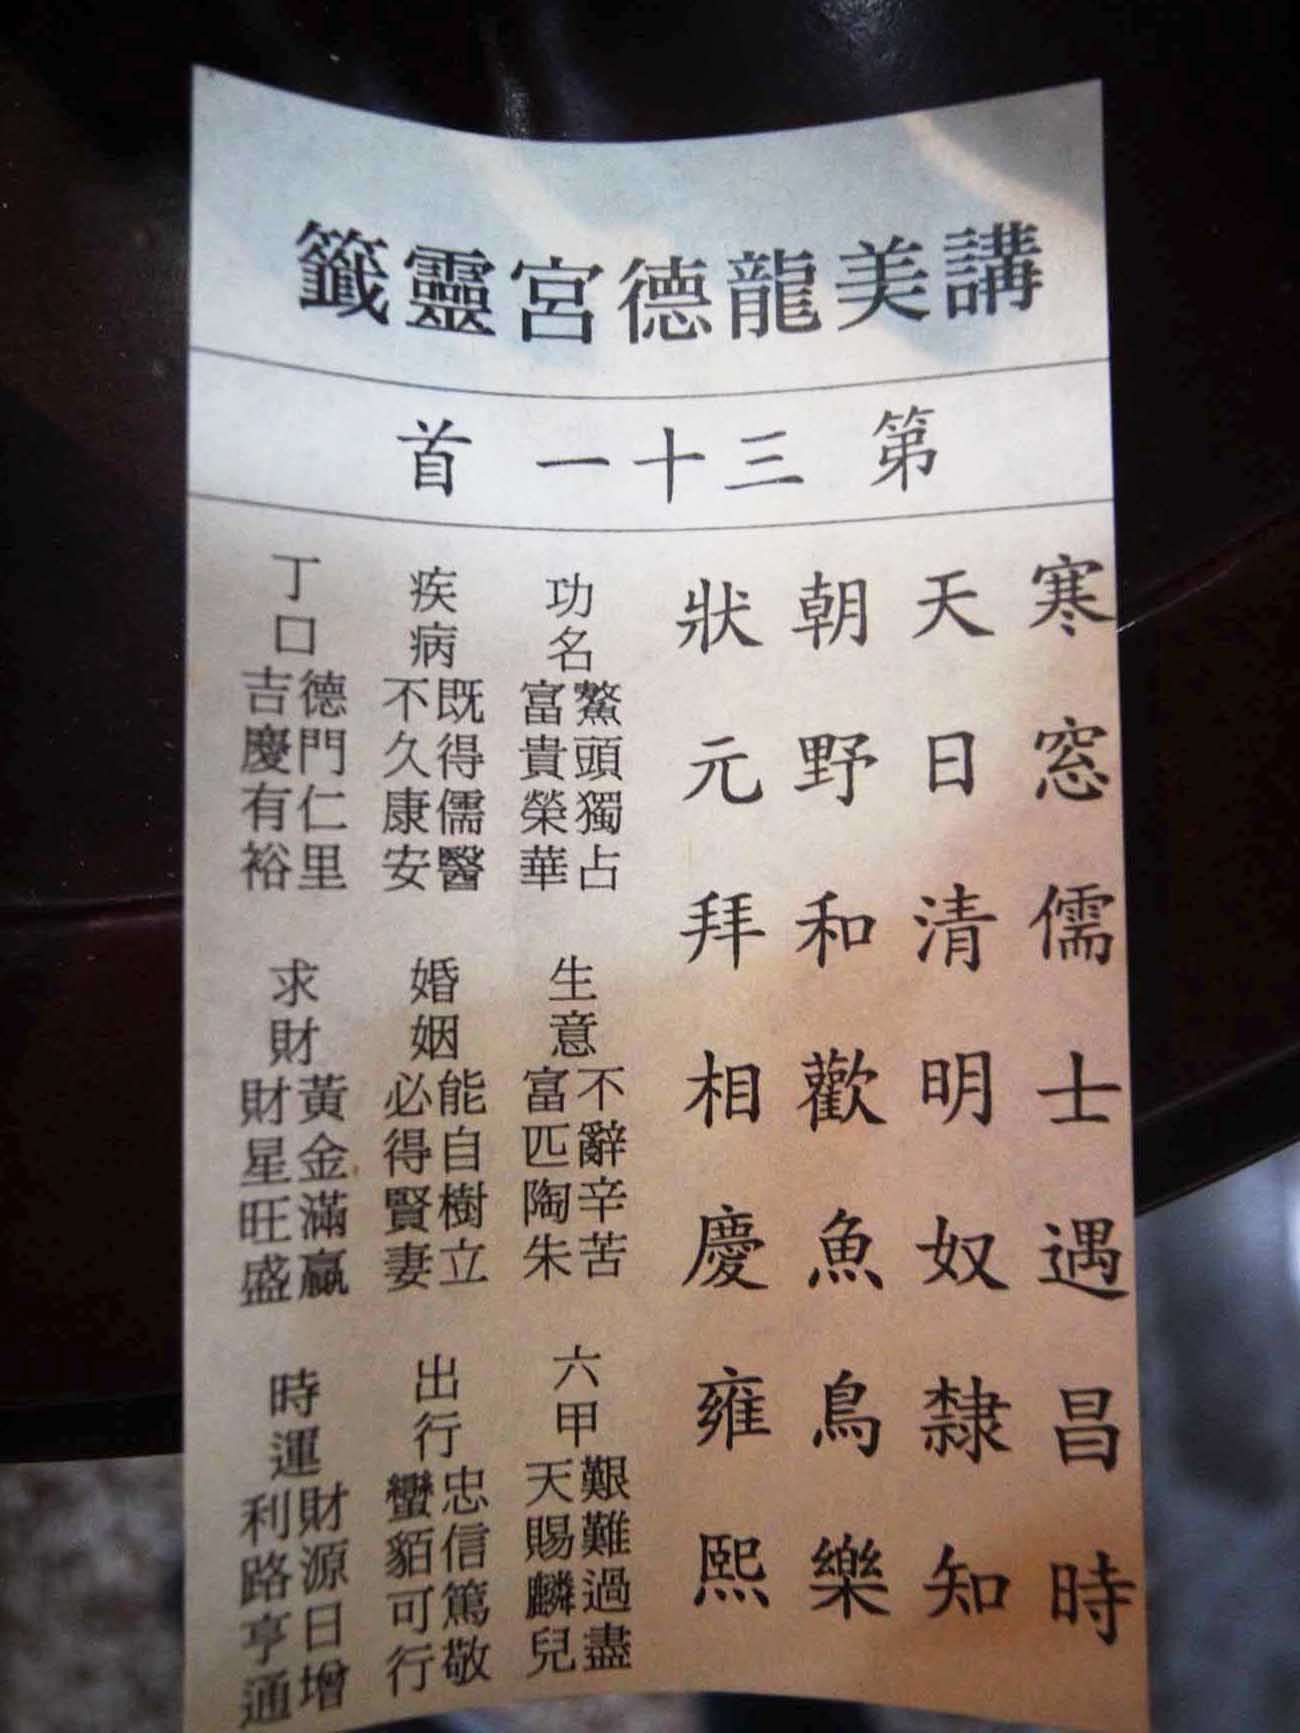 講美龍德宮靈籤
第三十一首
寒窓儒士遇昌時
天日清明奴隸知
朝野和歡魚鳥樂
狀元拜相慶雍熙
功名
鰲頭獨占
富貴榮華
生意
不辭辛苦
富匹陶朱
六甲
艱難過盡
天賜麟兒
疾病
既得儒醫
不久康安
婚姻
能自樹立
必得賢妻
出行
忠信篤敬
蠻貊可行
丁口
德門仁里
吉慶有裕
求財
黃金滿贏
財星旺盛
時運
財源日增
利路亨通